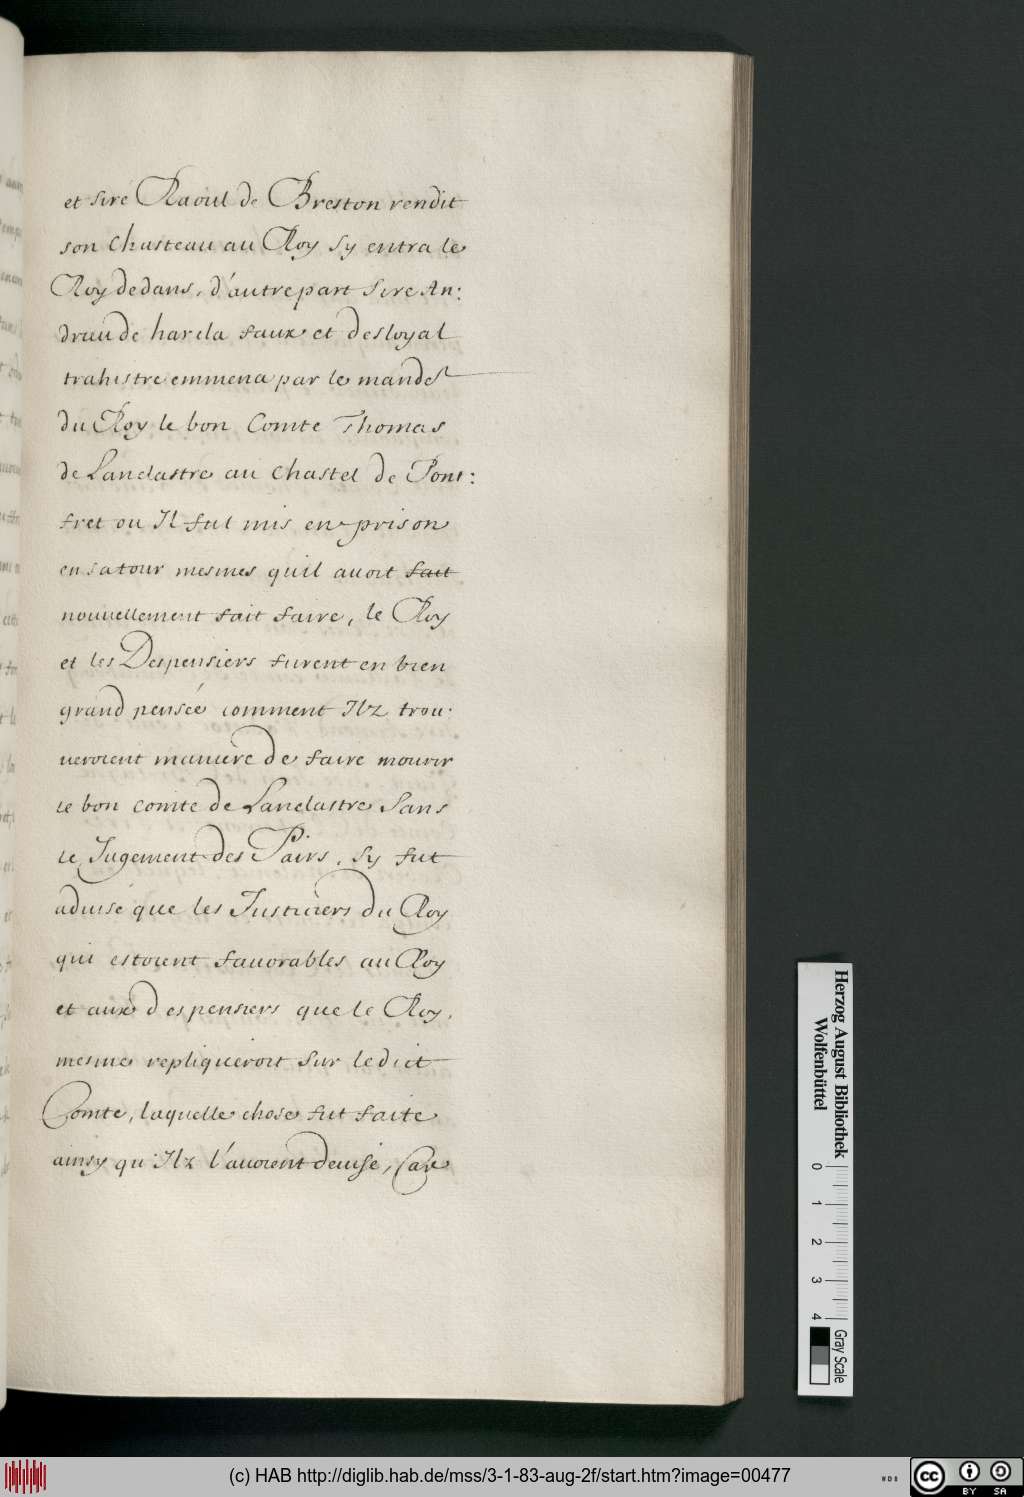 et sire Raoul de Breston rendit
son chasteau au Roy sy entra le
Roy dedans, d'autre part Sire An:
druu de harcla faux et desloyal
trahistre emmena par le mandes
du Roy le bon Comte Thomas
de Lanclastre au chastel de Pont:
fret ou Il fut mis en prison
en sa tour mesmes quil avoit fait
nouvellement fait faire, le Roy
et les Despensiers furent en bien
grand pensée comment Ilz trou:
veroient maniere de faire mourir
le bon comte de Lanclastre Sans
le Jugement des Pairs, sy fut
advise que les Justiciers du Roy
qui estoient favorables au Roy
et aux despensiers que le Roy,
mesme repliqueroit sur ledict
Comte, laquelle chose fut faite
ainsy qu'Ilz l'avoient devise, Car
Herzog August Bibliothek
Wolfenbüttel
0 1 2 3 4
Gray Scale
(c) HAB http://diglib.hab.de/mss/3-1-83-aug-2f/start.htm?image=00477
WDB
cc BY SA